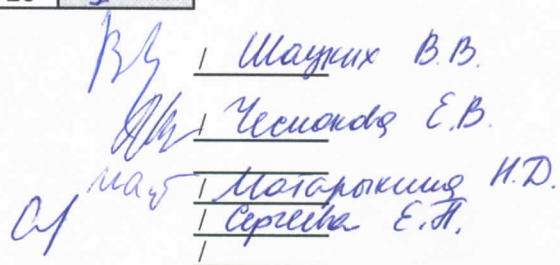 / Шацких В.В.
/ Чеснокова Е.В.
/ Матарыкина Н.Д.
/ Сергеева Е.П.
/